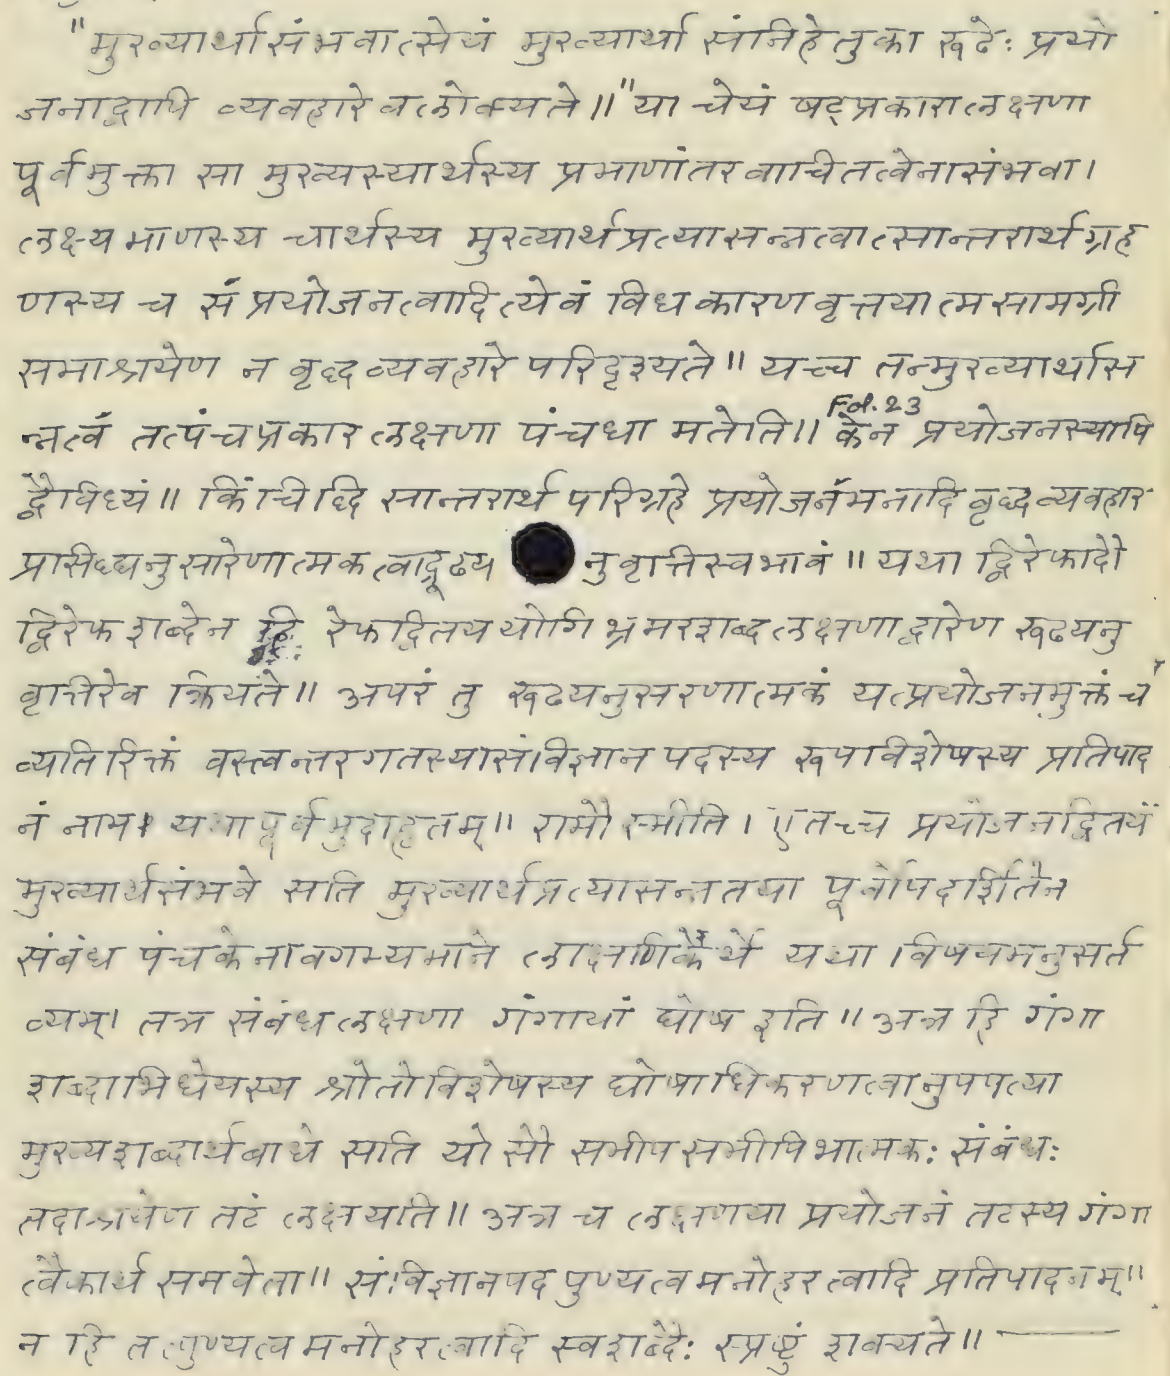 "मुख्यार्थासंभवात्सेयं मुख्यार्था संनिहेतुका रूढेः प्रयो
जनाद्वापि व्यवहारे वलोक्यते॥" या चेयं षट्प्रकारा लक्षणा
पूर्वमुक्ता सा मुख्यस्यार्थस्य प्रमाणांतर वाधितत्वेनासंभवा।
लक्ष्यमाणस्य चार्थस्य मुख्यार्थप्रत्यासन्नत्वात्सान्तरार्थग्रह
णस्य च संप्रयोजनत्वादित्येवं विधकारणवृत्तयात्मसामग्री
समाश्रयेण न वृद्धव्यवहारे परिदृश्यते॥ यच्च तन्मुख्यार्थास
न्नत्वं तत्पंचप्रकार लक्षणा पंचधा मतेति॥ केन प्रयोजनस्यापि
Fol. 23
द्वैविध्यं॥ किंचिद्धि सान्तरार्थ परिग्रहे प्रयोजनंमनादि वृद्धव्यवहार
प्रसिध्द्यनुसारेणात्मकत्वाद्रूढय नुवृत्तिस्वभावं॥ यथा द्विरेफादौ
द्विरेफशब्देन रेफद्वितययोगि भ्रमरशब्द लक्षणाद्वारेण रूढयनु
वृत्तिरेव क्रियते॥ अपरं तु रूढयनुसरणात्मकं यत्प्रयोजनमुक्तं च
व्यतिरिक्तं वस्त्वन्तरगतस्यासंविज्ञान पदस्य रूपविशेषस्य प्रतिपाद
नं नाम। यथा पूर्वमुदाहृतम्॥ रामो स्मीति। एतच्च प्रयोजनद्वितयं
मुख्यार्थसंभवे सति मुख्यार्थप्रत्यासन्नतया पूर्वोपदर्शितेन
संबंध पंचकेनावगम्यमाने लाक्षणिकेर्थे यथा विषयमनुसर्त
व्यम्। तत्र संबंध लक्षणा गंगायां घोष इति॥ अत्र हि गंगा
शब्दाभिधेयस्य श्रोतोविशेषस्य घोषाधिकरणत्वानुपपत्या
मुख्यशब्दार्थबाधे सति यो सौ समीपसमीपिभात्मकः संबंधः
तदाश्रयेण तटं लक्षयति॥ अत्र च लक्षणया प्रयोजनं तटस्य गंगा
त्वैकार्थ समवेता॥ संविज्ञानपद पुण्यत्वमनोहरत्वादि प्रतिपादनम्॥
न हि तत्पुण्यत्वमनोहरत्वादि स्वशब्दैः स्प्रष्टुं शक्यते॥